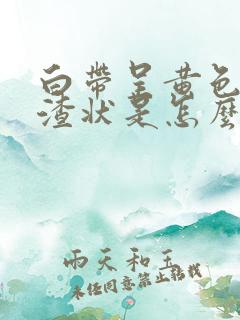 白帶呈黃色
渣狀是怎麼
雨天和玉
未经同意禁止转载